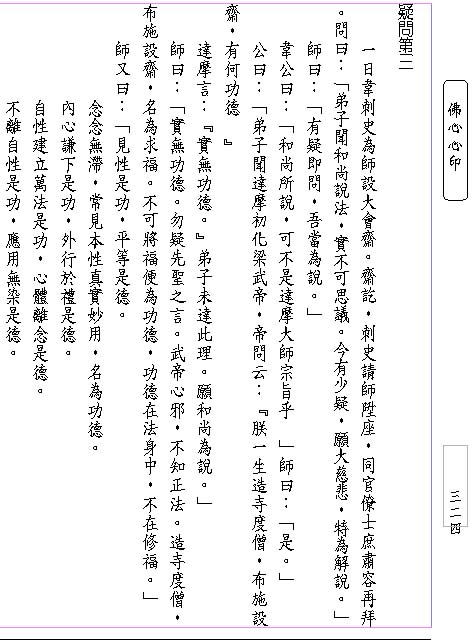 佛心心印
三二四
疑問第三
一日韋刺史為師設大會齋。齋訖，刺史請師陞座，同官僚士庶肅容再拜
。問曰：「弟子聞和尚說法，實不可思議。今有少疑，願大慈悲，特為解說。」
師曰：「有疑即問，吾當為說。」
韋公曰：「和尚所說，可不是達摩大師宗旨乎　」師曰：「是。」
公曰：「弟子聞達摩初化梁武帝，帝問云：『朕一生造寺度僧，布施設
齋，有何功德　』
達摩言：『實無功德。』弟子未達此理。願和尚為說。」
師曰：「實無功德。勿疑先聖之言。武帝心邪，不知正法。造寺度僧，
布施設齋，名為求福。不可將福便為功德，功德在法身中，不在修福。」
師又曰：「見性是功，平等是德。
念念無滯，常見本性真實妙用，名為功德。
內心謙下是功，外行於禮是德。
自性建立萬法是功，心體離念是德。
不離自性是功，應用無染是德。